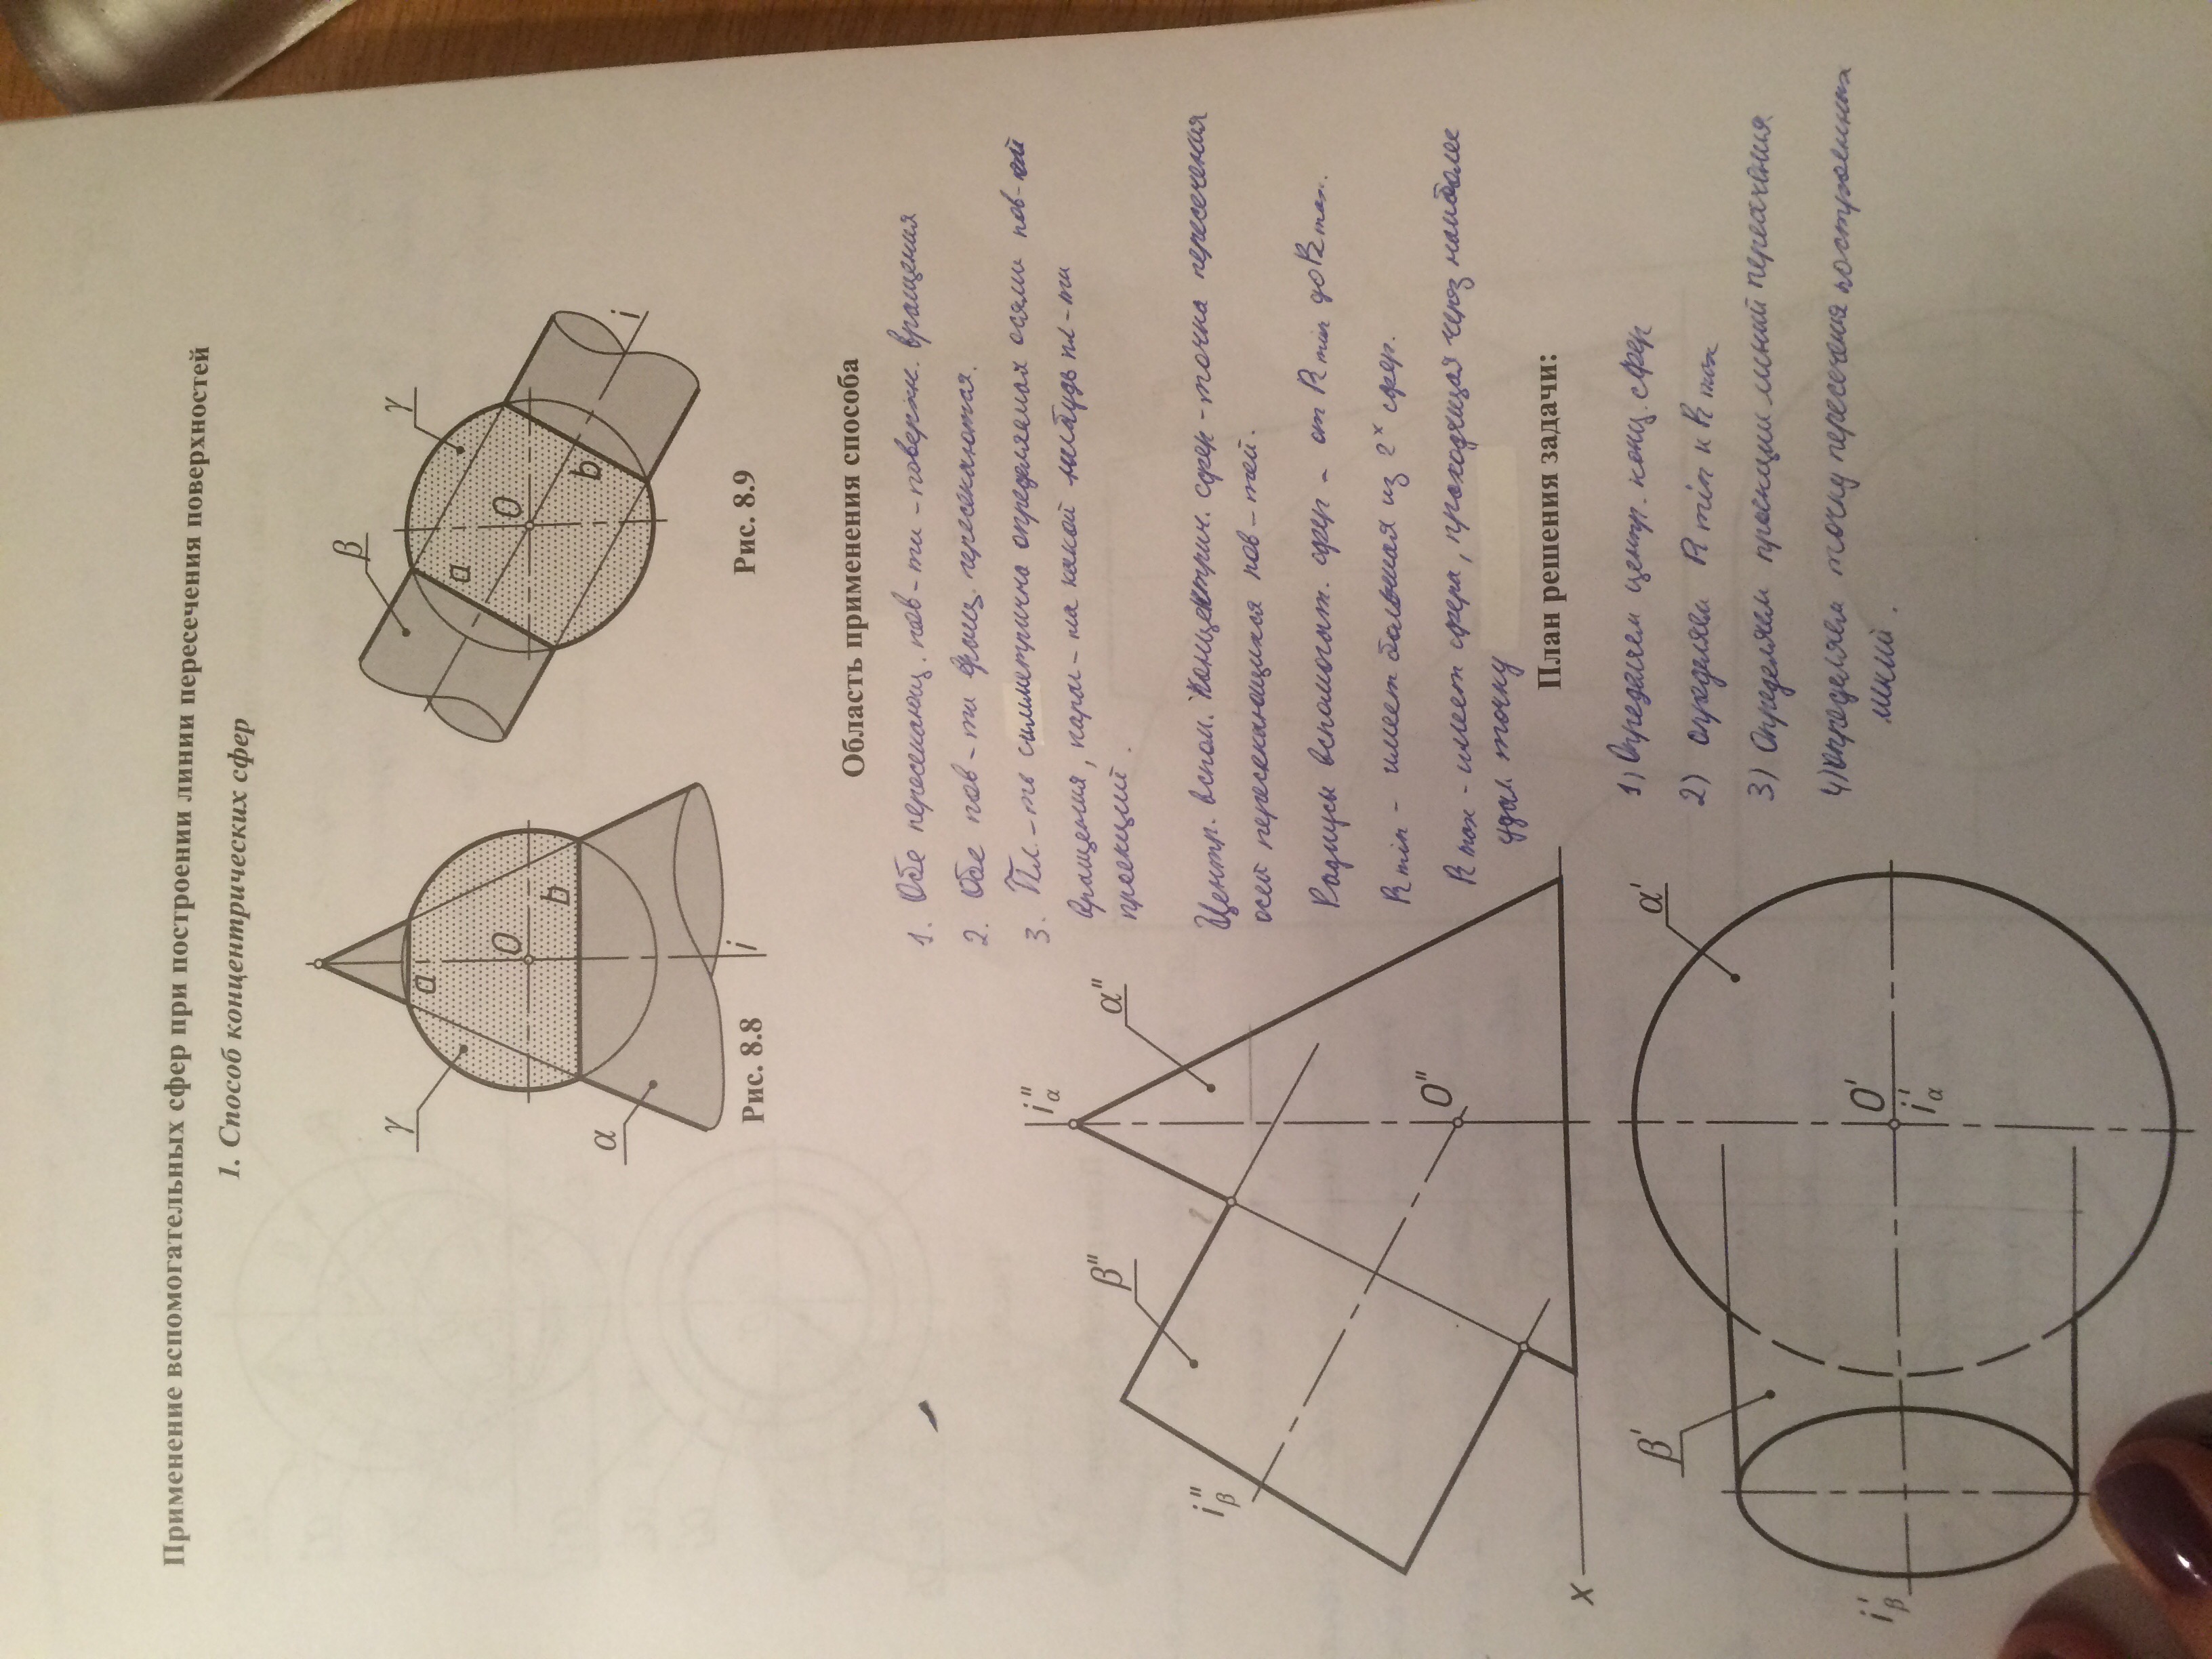 Применение вспомогательных сфер при построении линии пересечения поверхностей
1. Способ концентрических сфер
γ
a
O
b
α
i
Рис. 8.8
β
γ
a
O
b
i
Рис. 8.9
Область применения способа
1. Обе пересекающ. пов-ти - поверхн. вращения
2. Обе пов-ти вращ. пересекаются.
3. Пл-ть симметрична определяемая осями пов-ей
вращения, парал-на какой нибудь пл-ти
проекций.
Центр. вспом. концентрич. сфер - точка пересечения
осей пересекающихся пов-тей.
Радиусы вспомогат. сфер - от Rmin до Rmax.
Rmin - имеет большая из 2х сфер.
Rmax - имеет сфера, проходящая через наиболее
удал. точку
План решения задачи:
1) Определяем центр. конц. сфер
2) определяем Rmin и Rmax
3) Определяем проекции линий пересечения
4) определяем точку пересечения построенных
линий.
i"α
β"
α"
i"β
O"
x
β'
α'
i'β
O'
i'α